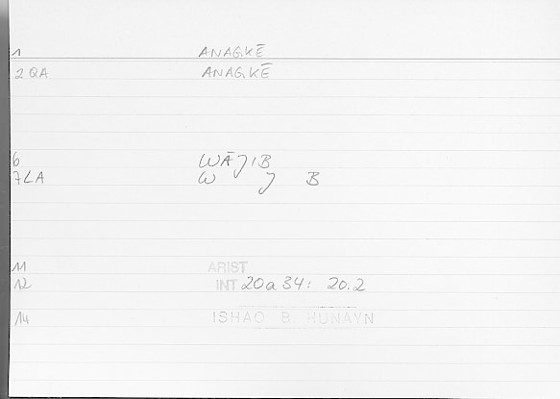 1 ANAGKĒ
2 QA ANAGKĒ
6 WĀJIB
7LA W J B
11 ARIST
12 INT 20a34: 20.2
14 ISHAQ B. HUNAYN